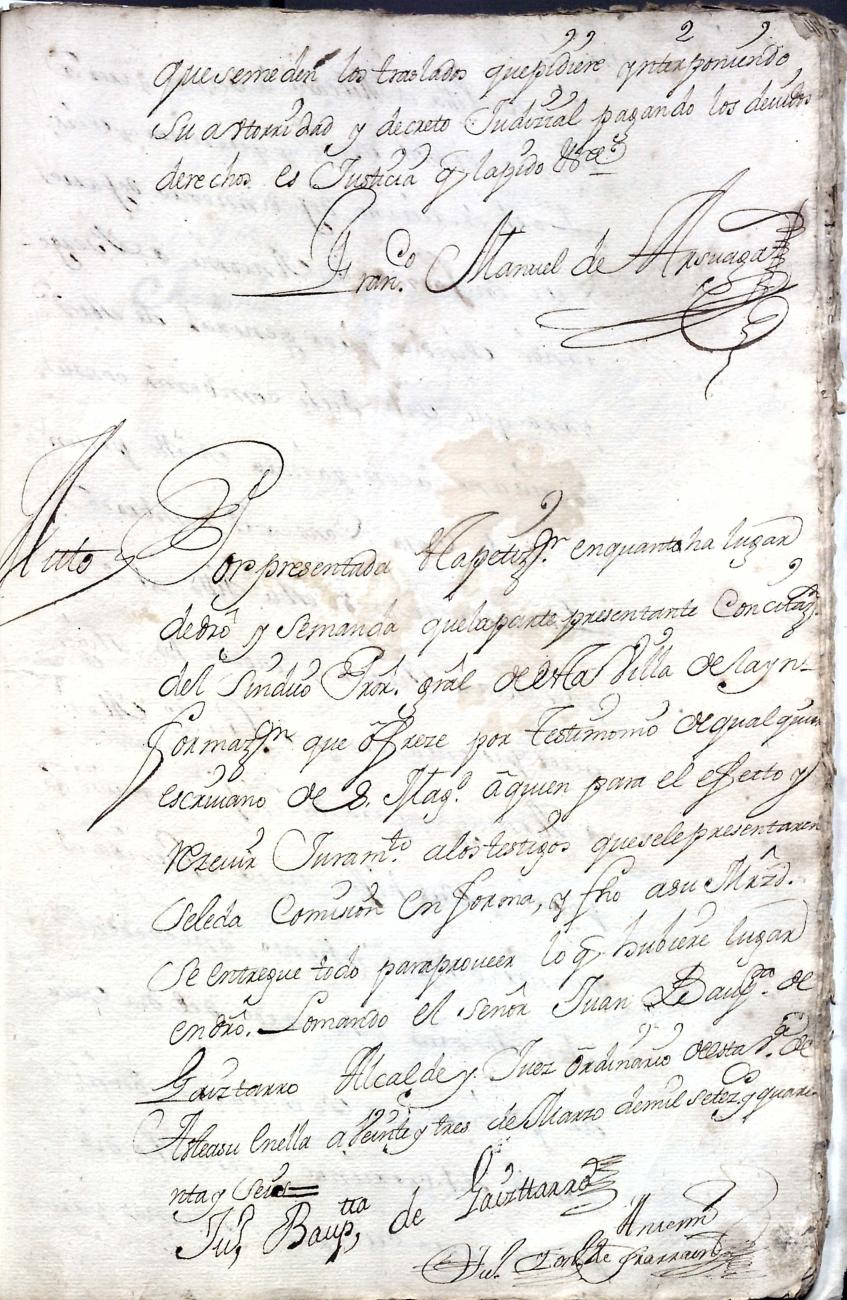 que se me den los traslados que pidiere ynterponiendo
su avtorridad y decreto Judizial pagando los devidos
derechos es Justicia q lapido &ª
Fran.co Manuel de Arsuaga
Auto Por presentada la petiz.n en quanto ha lugar
de dro y se manda que la parte presentante Con citaz.n
del Sindico Pror. gral de esta Villa de la yn-
formaz.n que ofreze por testimonio de qualquier
escrivano de S. Mag.d a quien para el efecto y
rezeuir Juram.to a los testigos que se le presentaren
se le da Comision en forma, y fho a su Mrzd.
se entregue todo para proveer lo q hubiere lugar
en dro. Lo mando el señor Juan Baup.ta de
Gaiztarro Alcalde y Juez ordinario de esta v.a de
Asteasu en ella a Veinte y tres de Marzo de mil setez.os y quare-
nta y seis=
Ju.n Baup.tta de Gaizttarro
Antemi
Ju.n